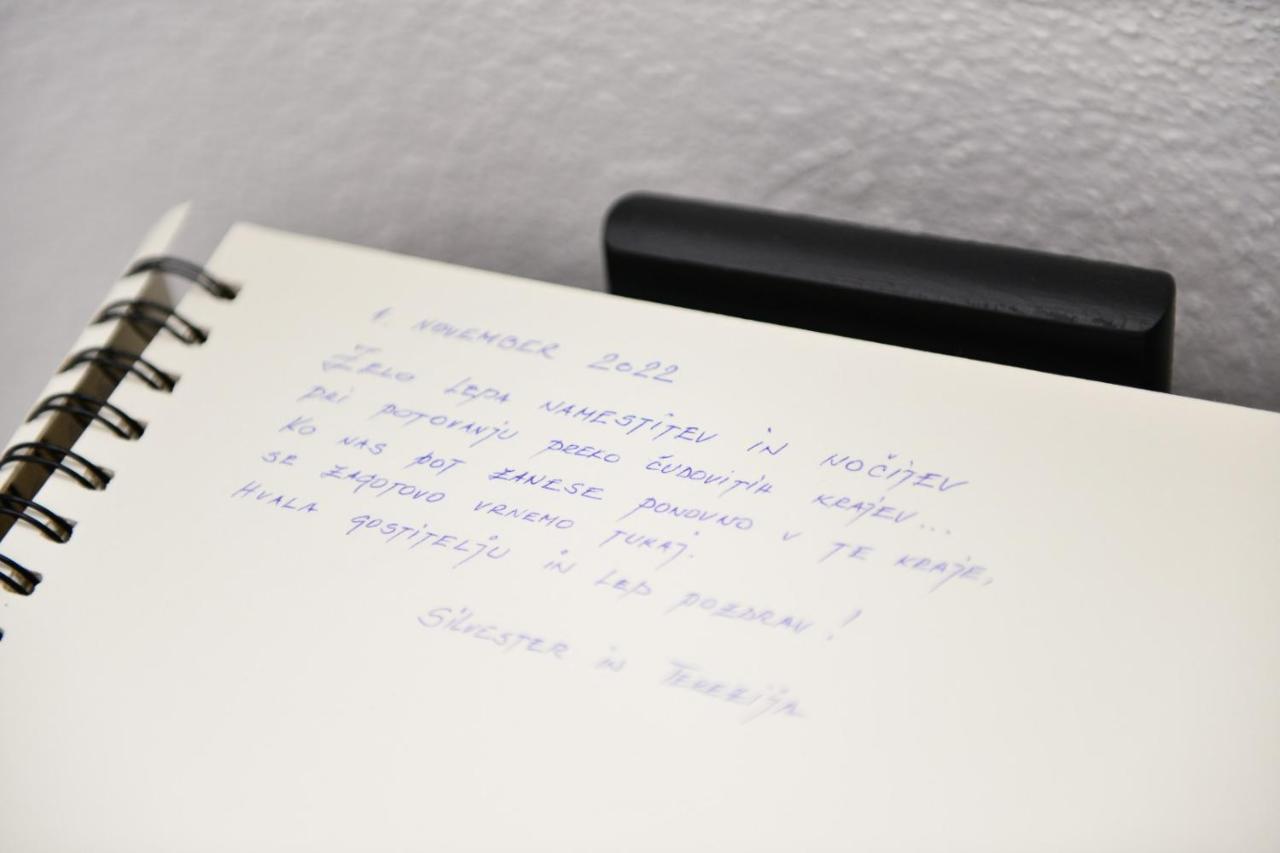 1. NOVEMBER 2022
ZELO LEPA NAMESTITEV IN NOČITEV
PRI POTOVANJU PREKO ČUDOVITIH KRAJEV...
KO NAS POT ZANESE PONOVNO V TE KRAJE,
SE ZAGOTOVO VRNEMO TUKAJ.
HVALA GOSTITELJU IN LEP POZDRAV!
SILVESTER IN TEREZIJA